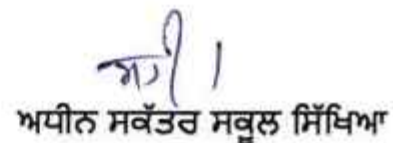 ਸਹੀ/
ਅਧੀਨ ਸਕੱਤਰ ਸਕੂਲ ਸਿੱਖਿਆ